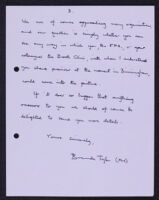 3.
We are of course approaching many organisations
and our question is simply whether you can
see any way in which you, the FPA, or your
colleagues the Brook Clinic, with whom I understand
you share premises at the moment in Birmingham,
could come into the picture.
If it ever so happen that anything
occurred to you we should of course be
delighted to send you more details.
Yours sincerely,
Brenda Taylor (Mrs)